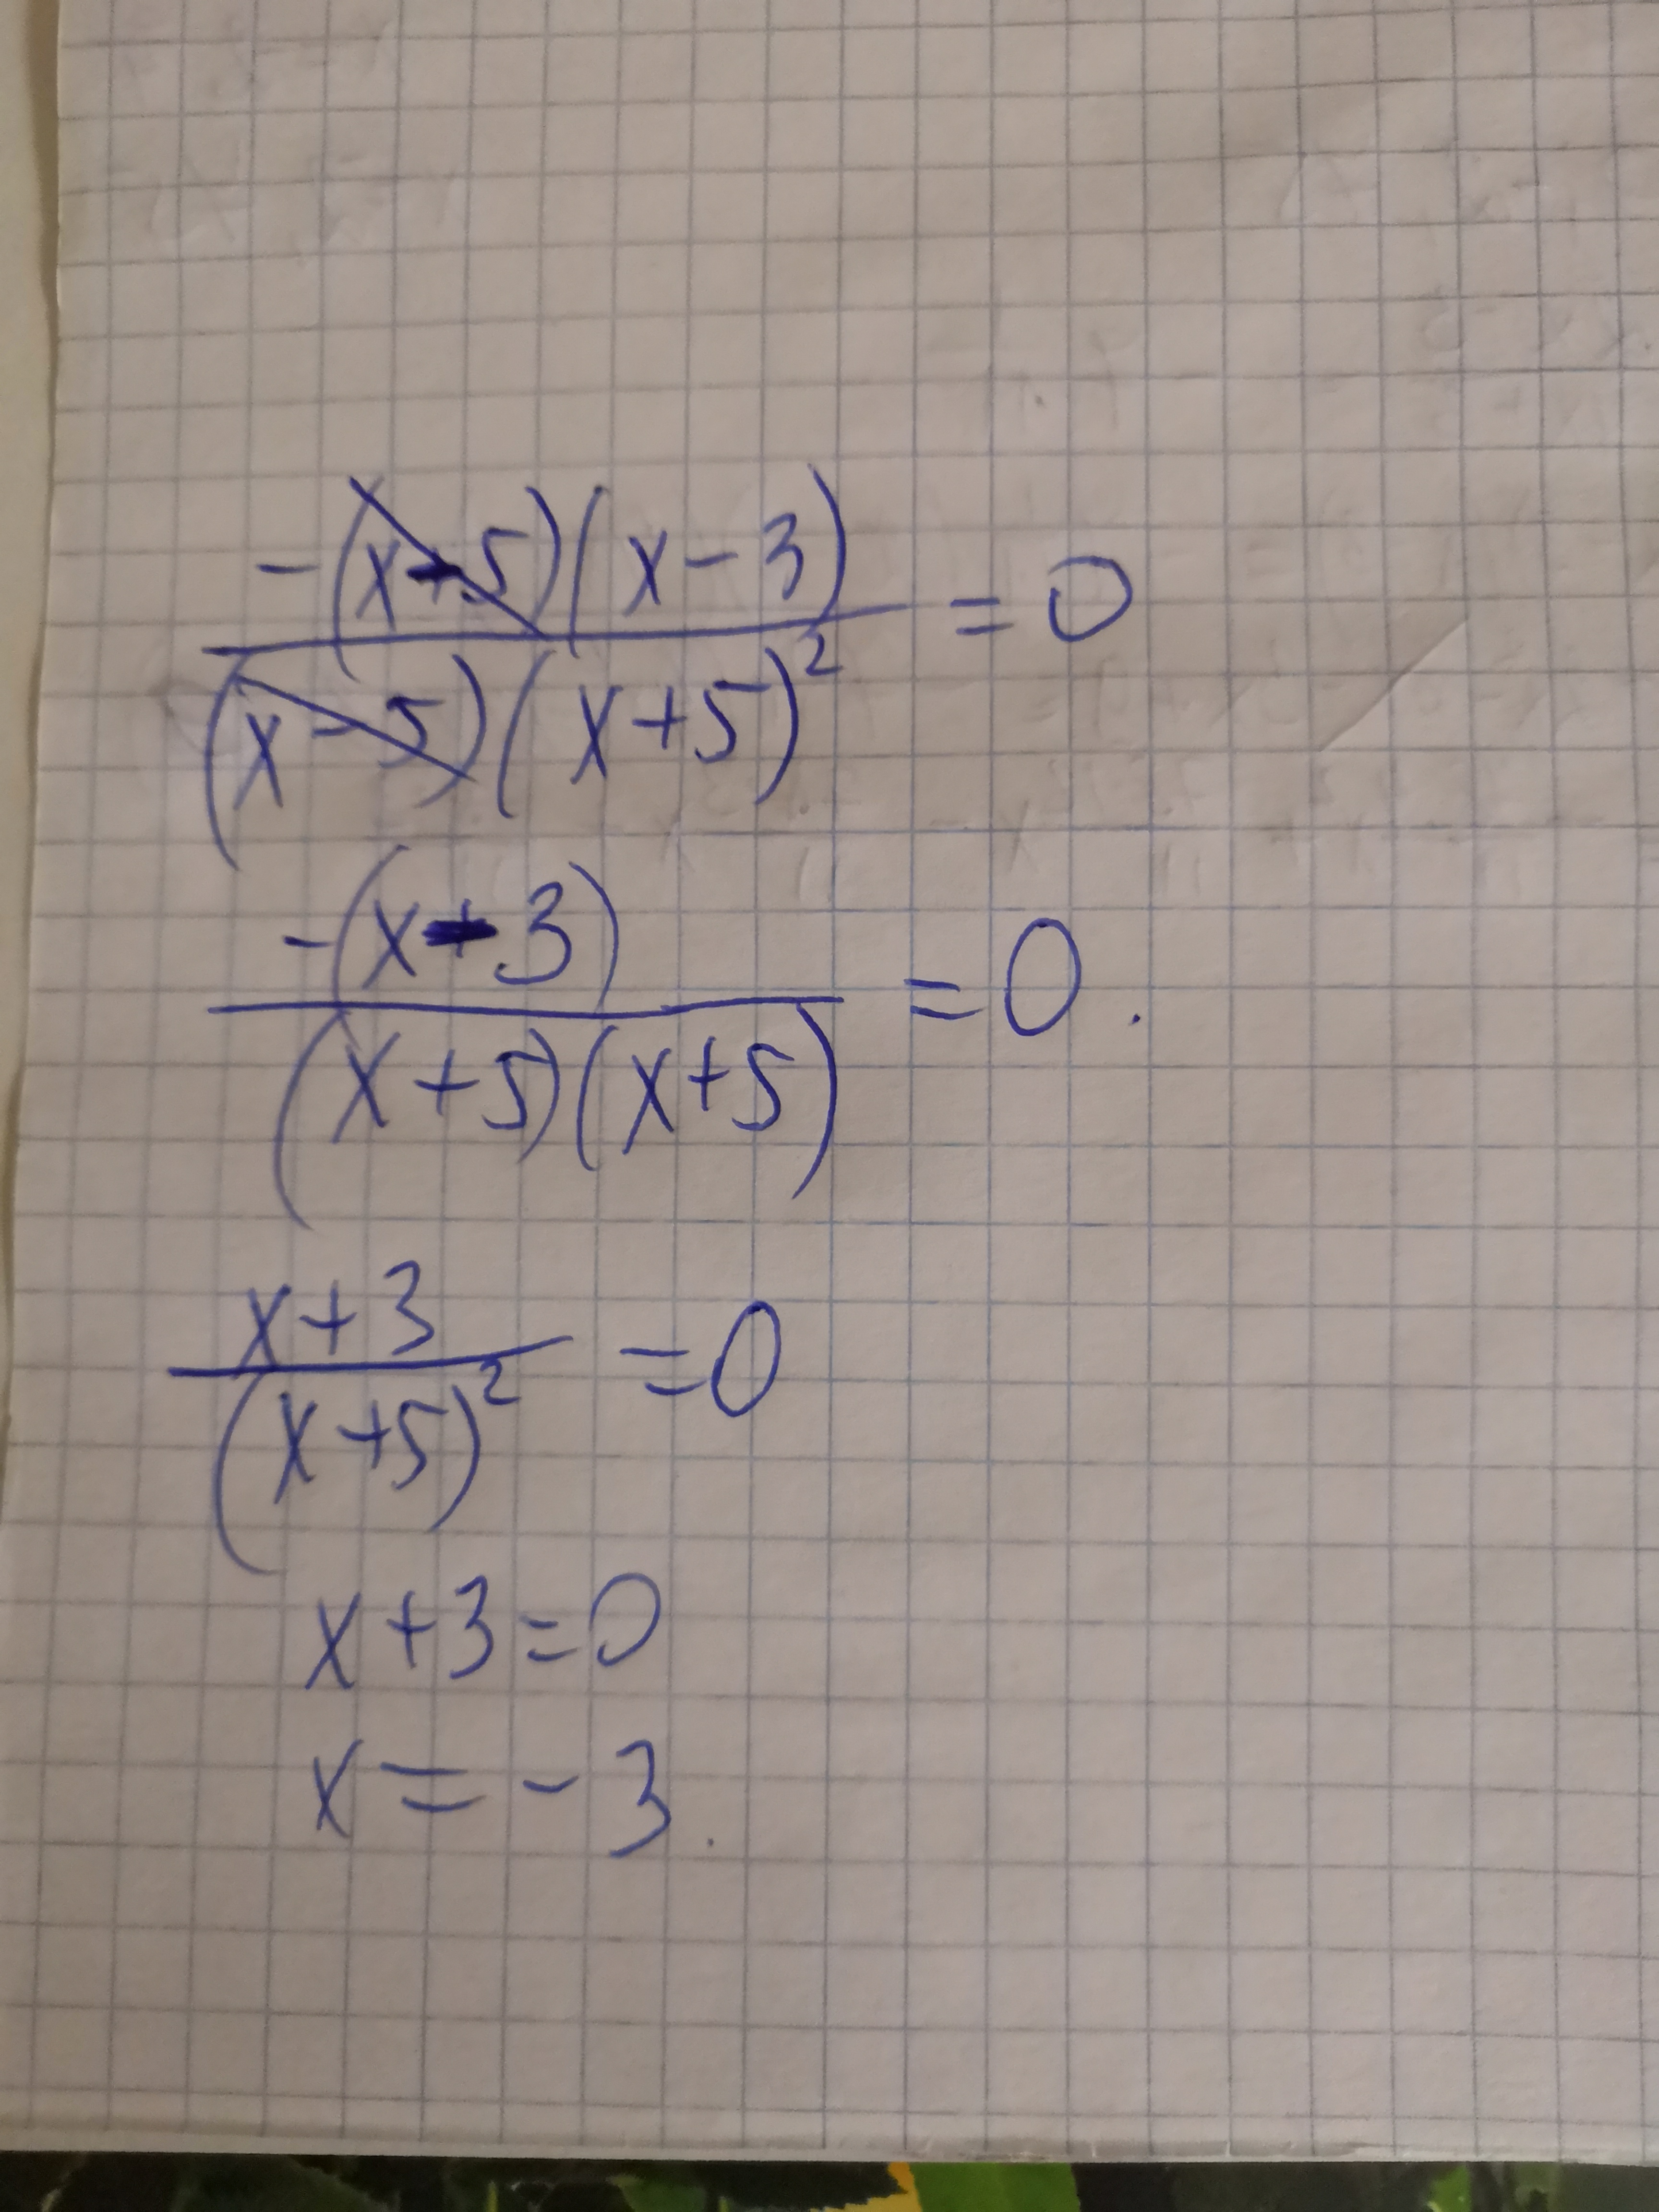 -(x-5)(x-3)
(x-5)(x+5)² = 0
-(x-3)
(x+5)(x+5) = 0.
x+3
(x+5)² = 0
x+3=0
x = -3.